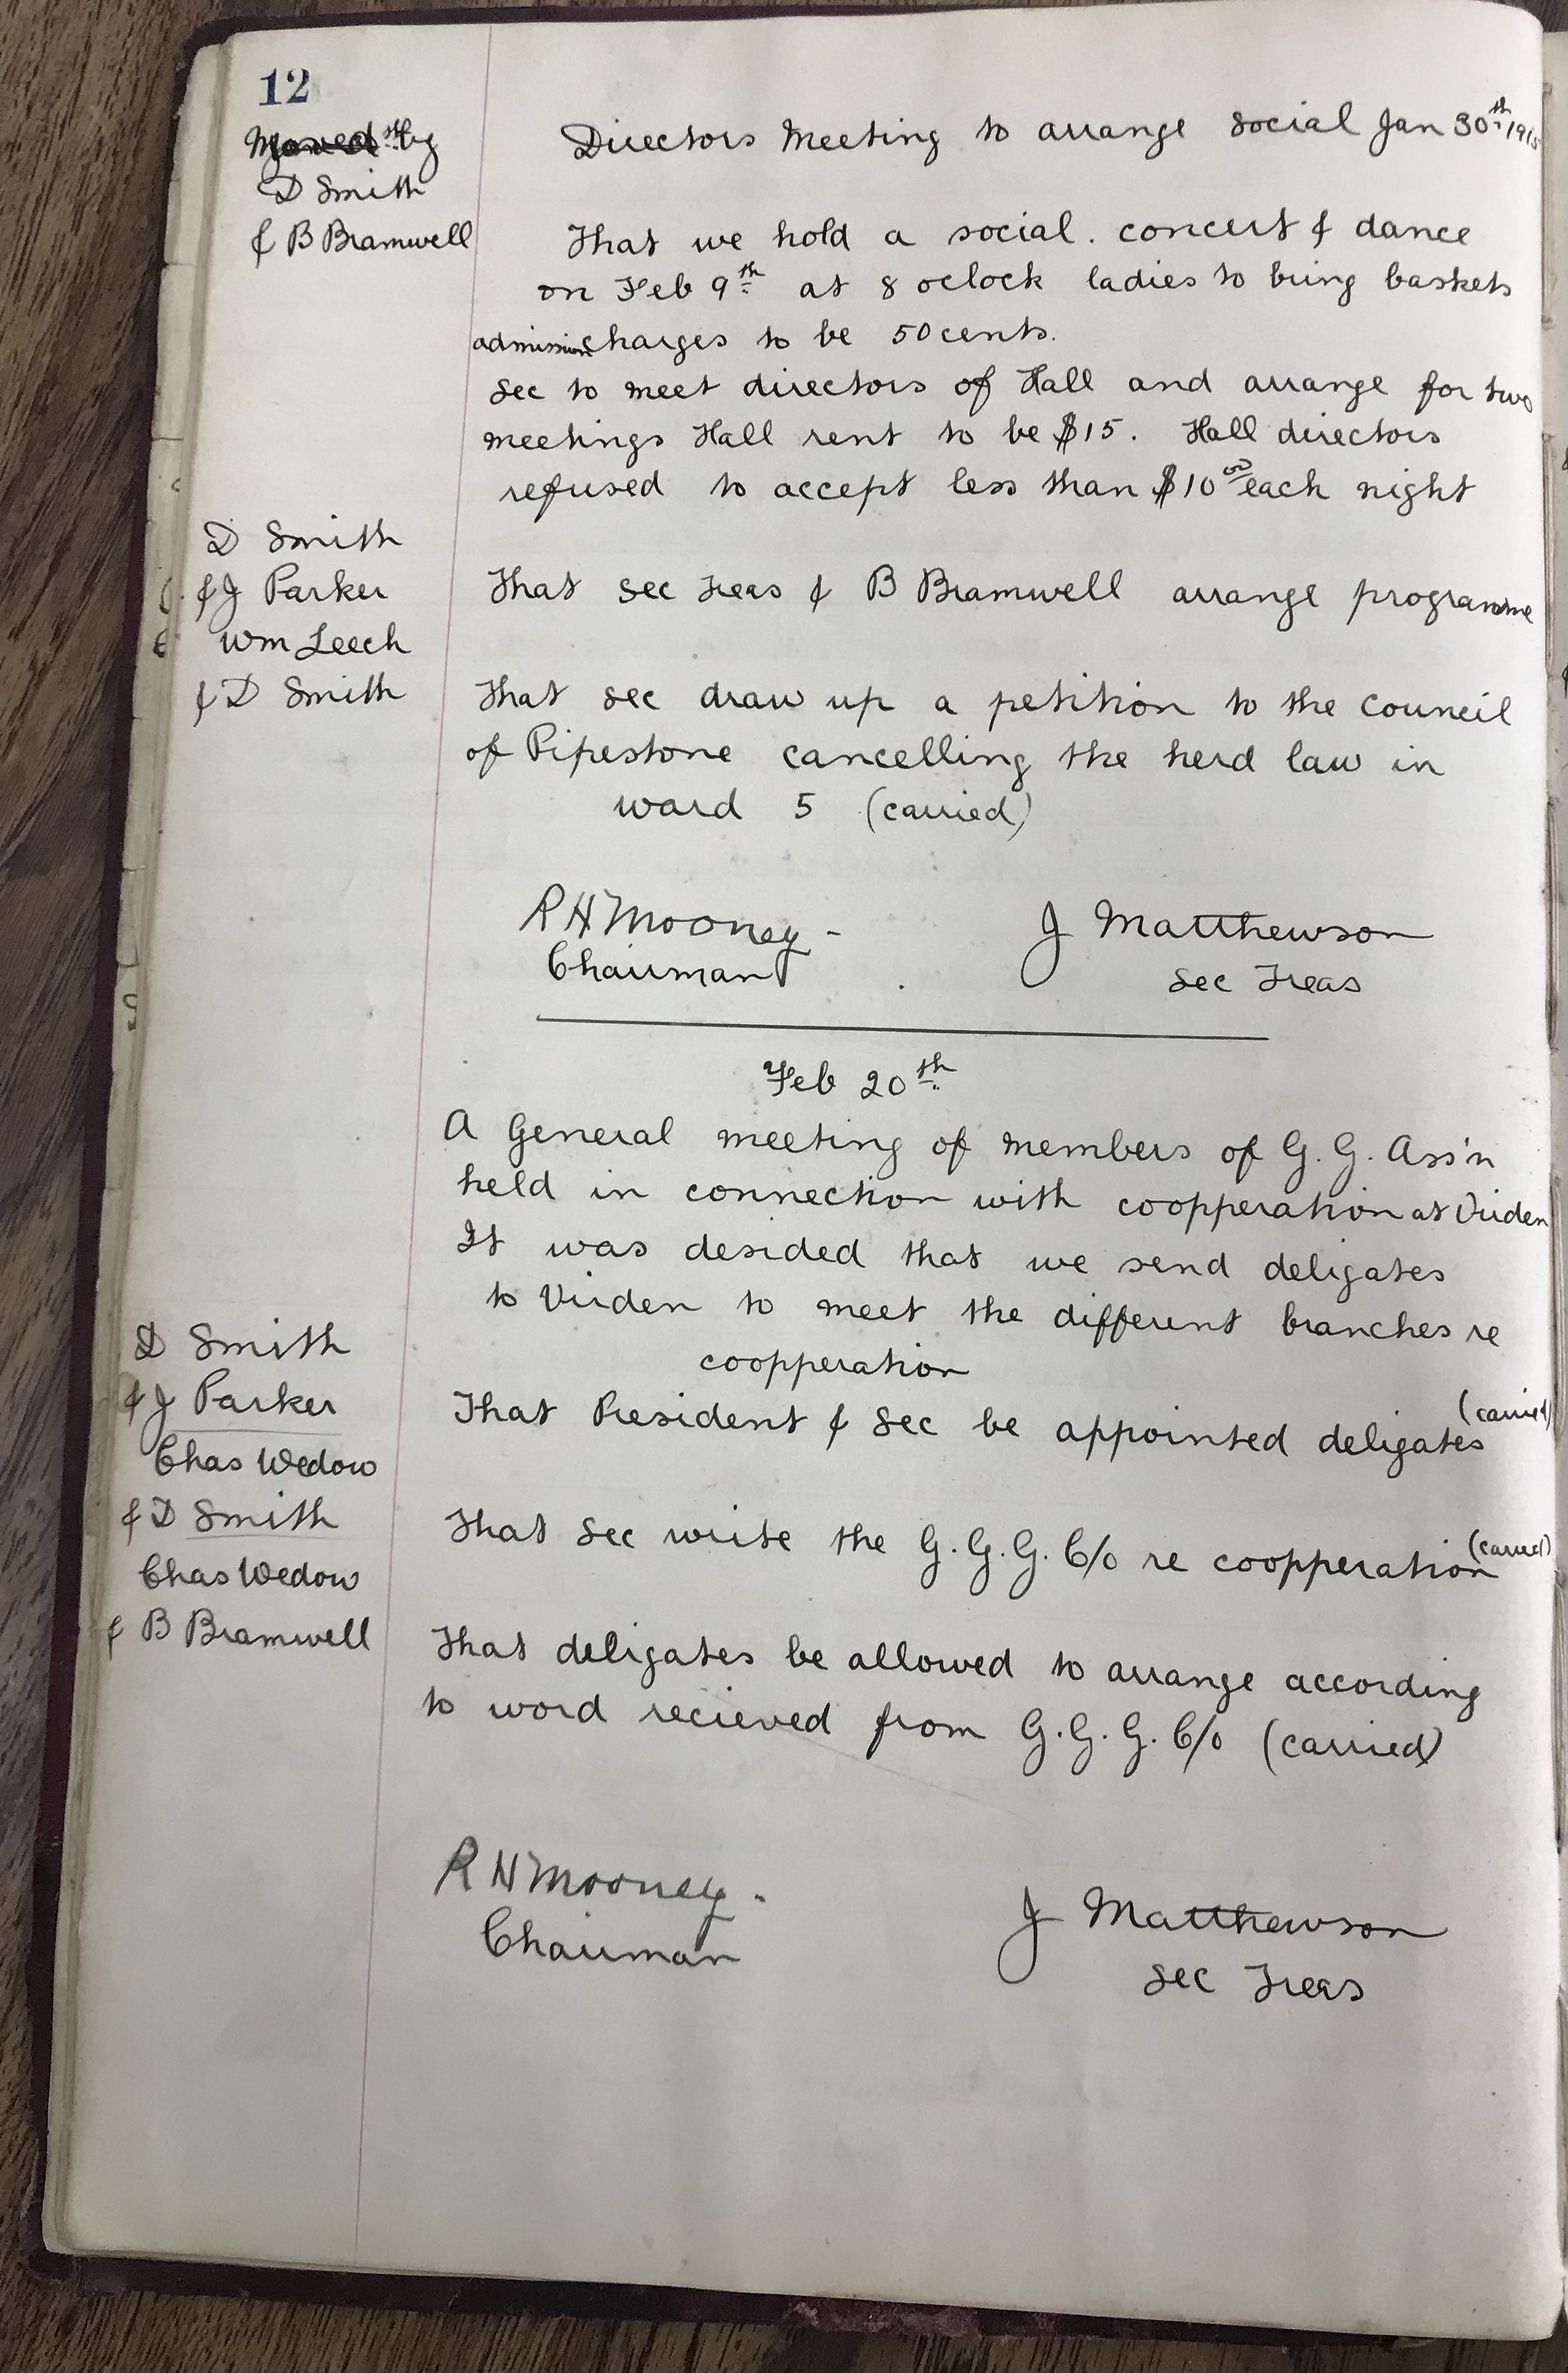 12
Moved by
Directors Meeting to arrange social Jan 30th 1915
D Smith
& B Bramwell
That we hold a social. concert & dance
on Feb 9th at 8 oclock ladies to bring baskets
admission charges to be 50 cents.
Sec to meet directors of Hall and arrange for two
meetings Hall rent to be $15. Hall directors
refused to accept less than $10 00 each night
D Smith
& J Parker
That Sec Treas & B Bramwell arrange programme
Wm Leech
& D Smith
That sec draw up a petition to the Council
of Pipestone cancelling the herd law in
ward 5 (carried)
R H Mooney -
Chairman
J Matthewson
Sec Treas
Feb 20th
A General meeting of members of G. G. Ass'n
held in connection with coopperation at Virden
It was desided that we send deligates
to Virden to meet the different branches re
coopperation
D Smith
& J Parker
That President & Sec be appointed deligates (carried)
Chas Wedow
& D Smith
That Sec write the G. G. G. C/o re coopperation (carried)
Chas Wedow
& B Bramwell
That deligates be allowed to arrange according
to word recieved from G. G. G. C/o (carried)
R H Mooney -
Chairman
J Matthewson
Sec Treas